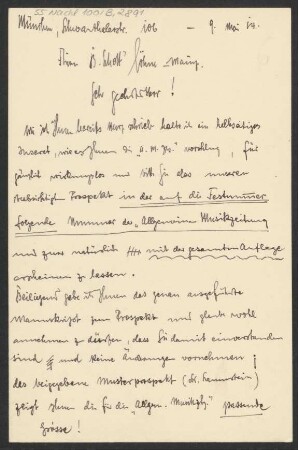 55 Nachl 100/B, 2891
München, Schwanthalerstr. 106 – 9. Mai 14.
Firma B. Schott' Söhne Mainz.
Sehr geehrter Herr!
Wie ich Ihnen bereits kurz schrieb halte ich ein halbseitiges
Inserat, wie es Ihnen die „A. M. Ztg." vorschlug, für
gänzlich wirkungslos und bitte Sie also unseren
beabsichtigt Prospekt in der auf die Festnummer
folgende Nummer der „Allgemeine Musikzeitung
und zwar natürlich mit der gesamten Auflage
erscheinen zu lassen.
Beiliegend gebe ich Ihnen das genau ausgeführte
Manuskript zum Prospekt und glaube wohl
annehmen zu dürfen, dass Sie damit einverstanden
sind und keine Änderungen vornehmen;
das beigegebene Musterprospekt (Dr.
zeigt Ihnen die für die „Allgem. Musikztg." passende
Grösse!